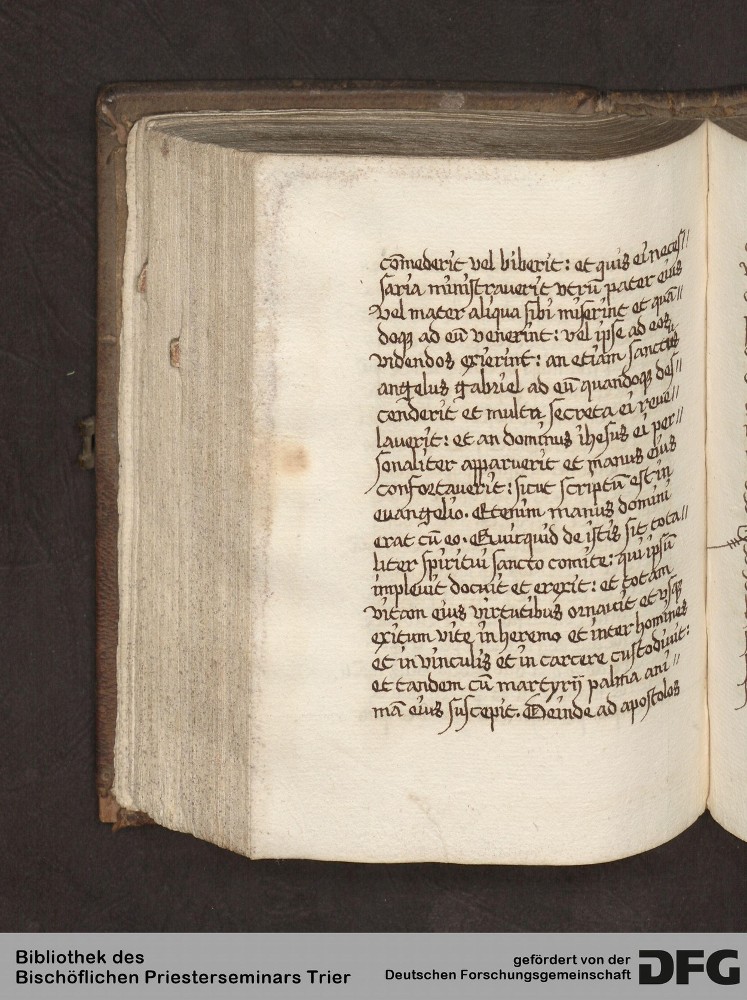 cōmederit vel biberit: et quis ei neces//
saria ministrauerit vtrū pater eius
vel mater aliqua sibi miserint et quā//
doqȝ ad eū venerint: vel ipse ad eos
videndos exierint: an etiam sanctus
angelus gabriel ad eū quandoqȝ des//
cenderit et multa secreta ei reue//
lauerit: et an dominus ihesus ei per//
sonaliter apparuerit et manus eius
confortauerit: sicut scriptū est in
euangelio. Etenim manus domini
erat cū eo. Quitquid de istis sit tota//
liter spiritui sancto comite: qui ipsū
impleuit docuit et erexit: et totam
vitam eius virtutibus ornauit et vsqȝ
exitum vite in heremo et inter homines
et in vinculis et in carcere custodiuit:
et tandem cū martyrij palma ani//
mā eius suscepit. Deinde ad apostolos
Bibliothek des
Bischöflichen Priesterseminars Trier
gefördert von der
Deutschen Forschungsgemeinschaft
DFG